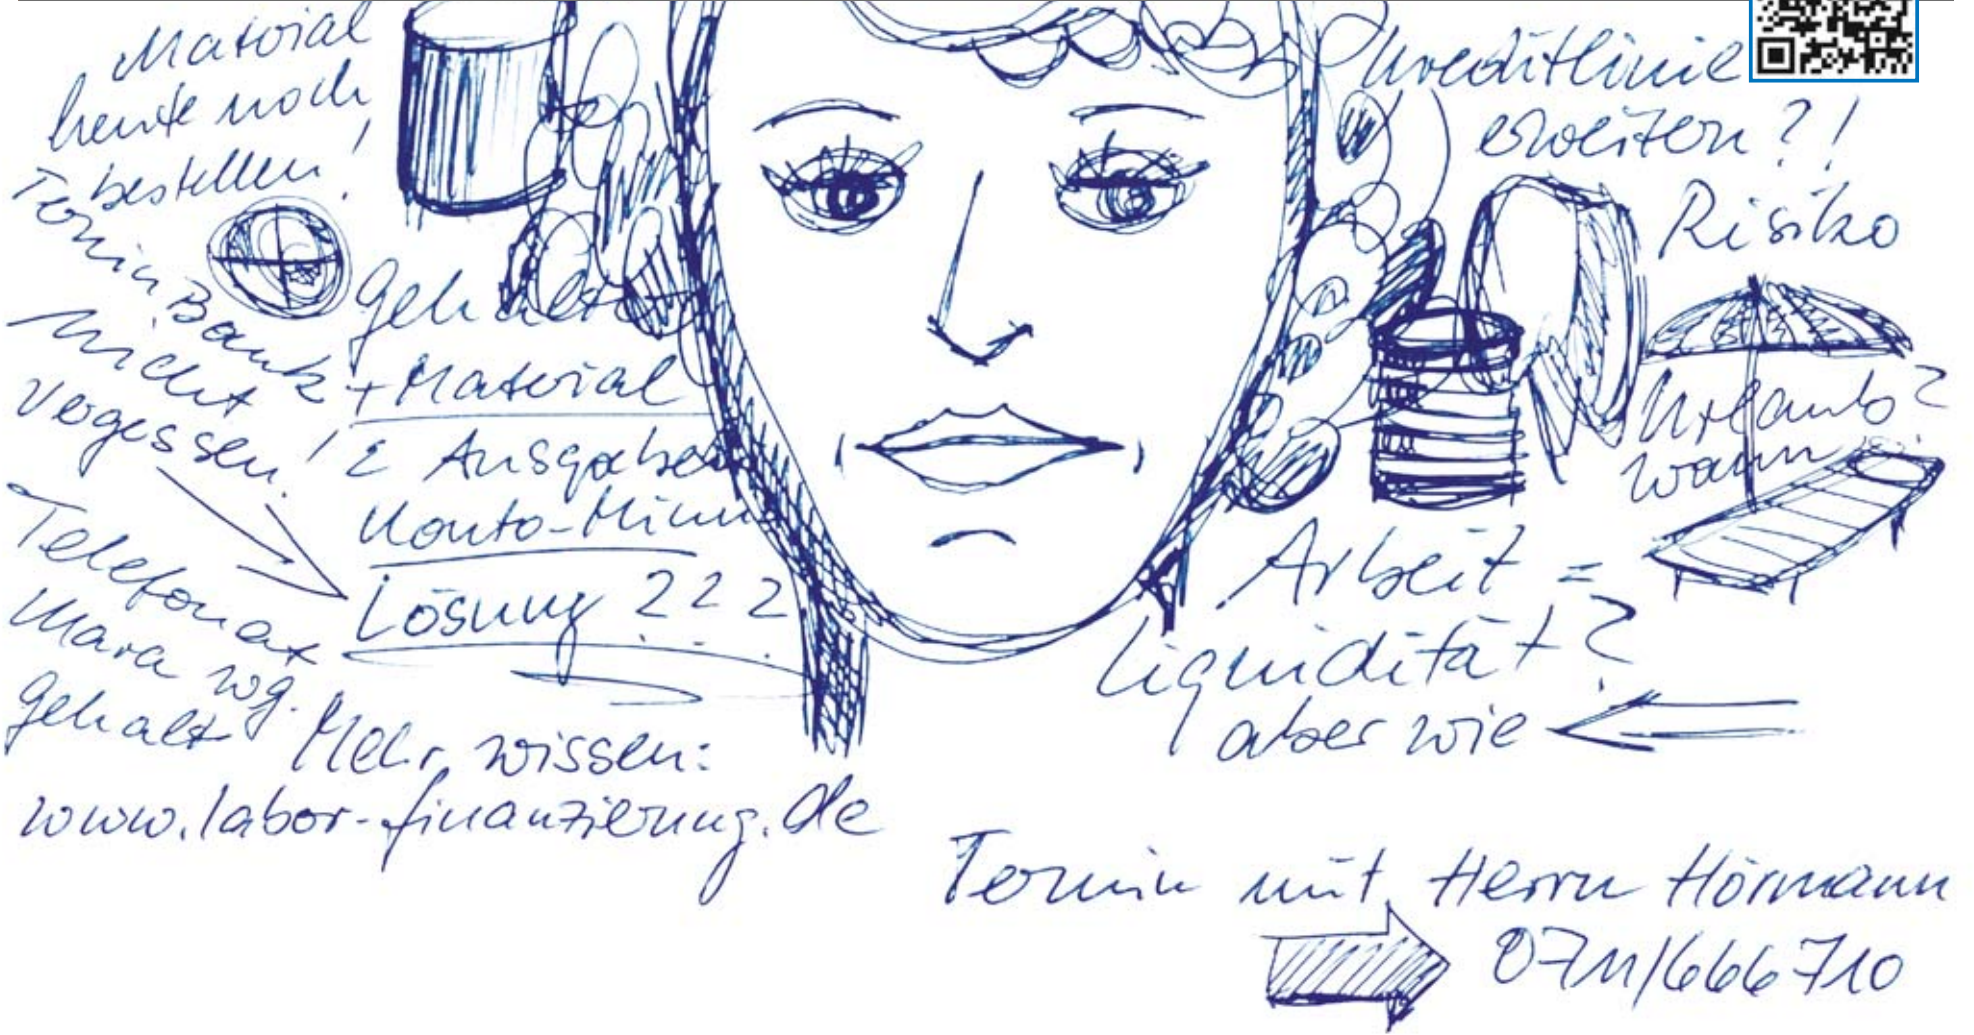 Material
heute noch
bestellen!
Termin Bank
nicht
vergessen!
Gehalt
+ Material
Σ Ausgaben
Konto-Minus
Lösung ???
Telefonat
Mara wg.
Gehalt
Mehr wissen:
www.labor-finanzierung.de
Kreditlinie
erweitern?!
Risiko
Urlaub?
wann
Arbeit =
Liquidität?
aber wie
Termin mit Herrn Hörmann
0711/666 710